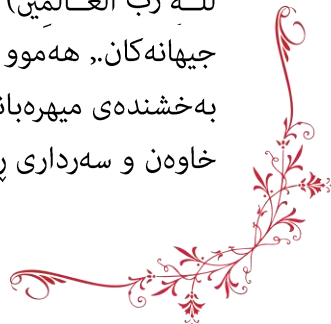 للـه رب العـالمين)
جیهانەکان., هەموو
بەخشندەی میهرەبان
خاوەن و سەرداری ڕ